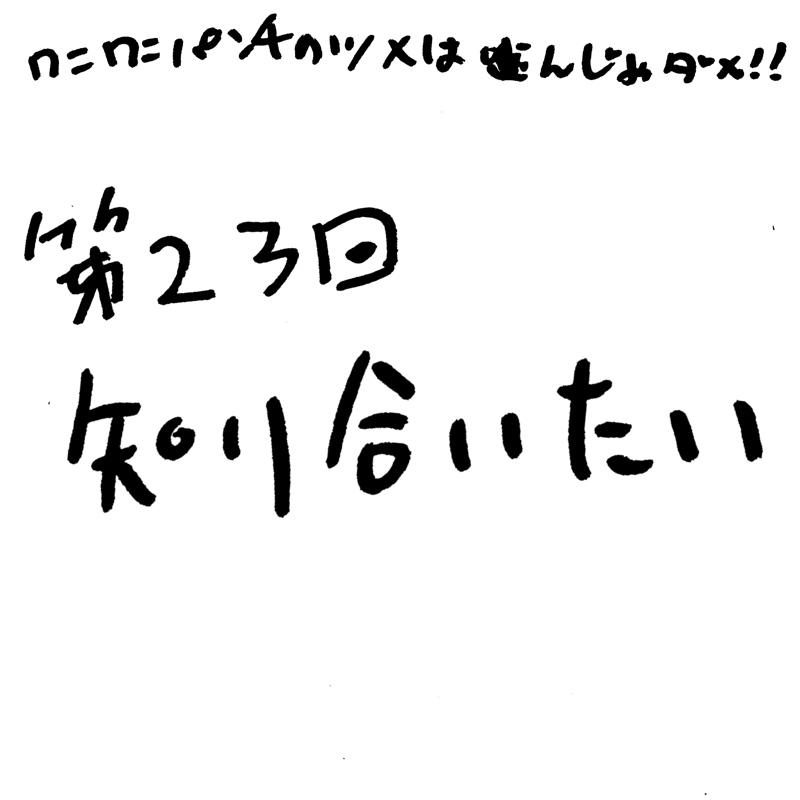 ワニワニパAのツメは噛んじゃダメ!!
第23回
知り合いたい